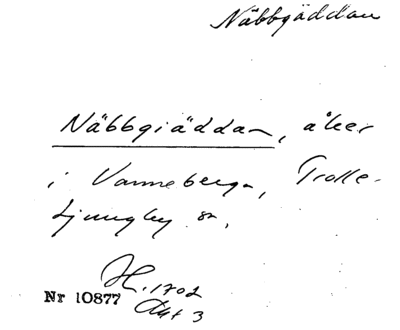 Näbbgäddan
Näbbgiäddan, åker
i Vanneberga, Trolle-
Ljungby sn.
H. 1702
Nr 10877 Akt 3